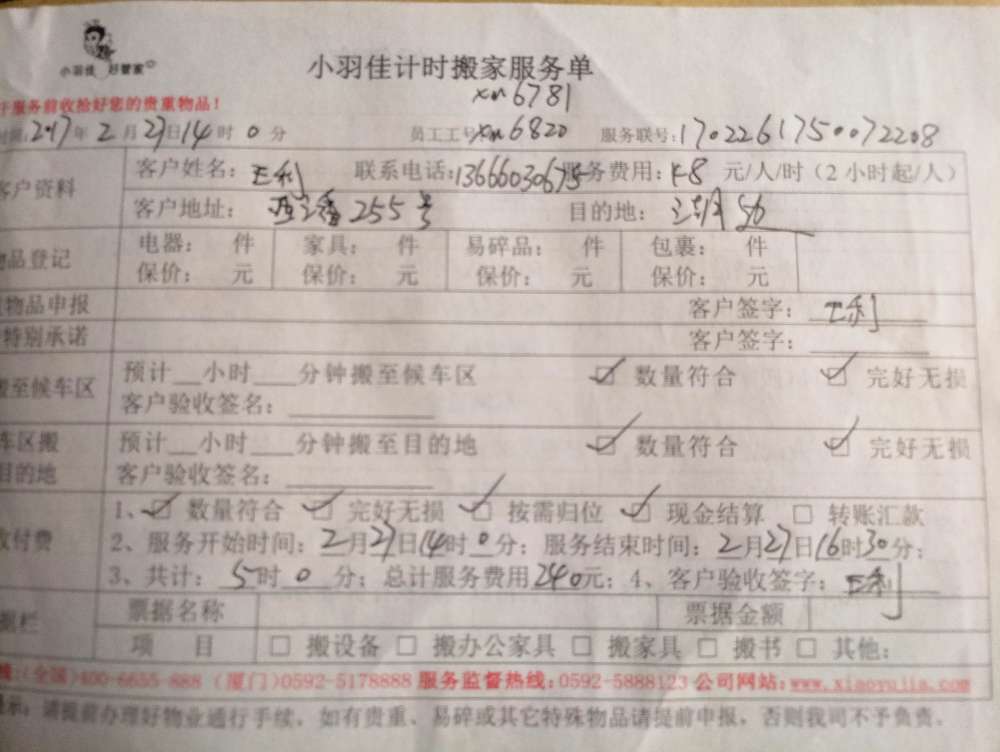 小羽佳 好管家
小羽佳计时搬家服务单
xm6781
服务前收拾好您的贵重物品！
2017年2月27日14时0分 员工工号xm6820 服务联号：1702261750072208
客户资料
客户姓名：王利 联系电话：13666030675 服务费用：48 元/人/时（2小时起/人）
客户地址： 255号 目的地：
物品登记
电器： 件 家具： 件 易碎品： 件 包裹： 件
保价： 元 保价： 元 保价： 元 保价： 元
物品申报 客户签字：王利
特别承诺 客户签字：
搬至候车区
预计__小时___分钟搬至候车区 ☑ 数量符合 ☑ 完好无损
客户验收签名：
车区搬
目的地
预计__小时___分钟搬至目的地 ☑ 数量符合 ☑ 完好无损
客户验收签名：
付费
1、☑ 数量符合 ☑ 完好无损 ☑ 按需归位 ☑ 现金结算 □ 转账汇款
2、服务开始时间：2月27日14时0分；服务结束时间：2月27日16时30分；
3、共计：5时0分；总计服务费用240元；4、客户验收签字：王利
栏
票据名称 票据金额
项 目 □ 搬设备 □ 搬办公家具 □ 搬家具 □ 搬书 □ 其他：
线：（全国）400-6655-888 （厦门）0592-5178888 服务监督热线：0592-5888123 公司网站：www.xiaoyujia.com
示：请提前办理好物业通行手续，如有贵重、易碎或其它特殊物品请提前申报，否则我司不予负责。